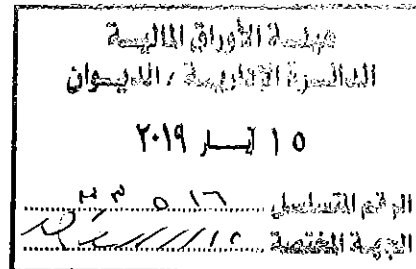 هيئة الأوراق المالية
الدائرة الإدارية / الديوان
١٥ آيار ٢٠١٩
الرقم المتسلسل
الجهة المختصة